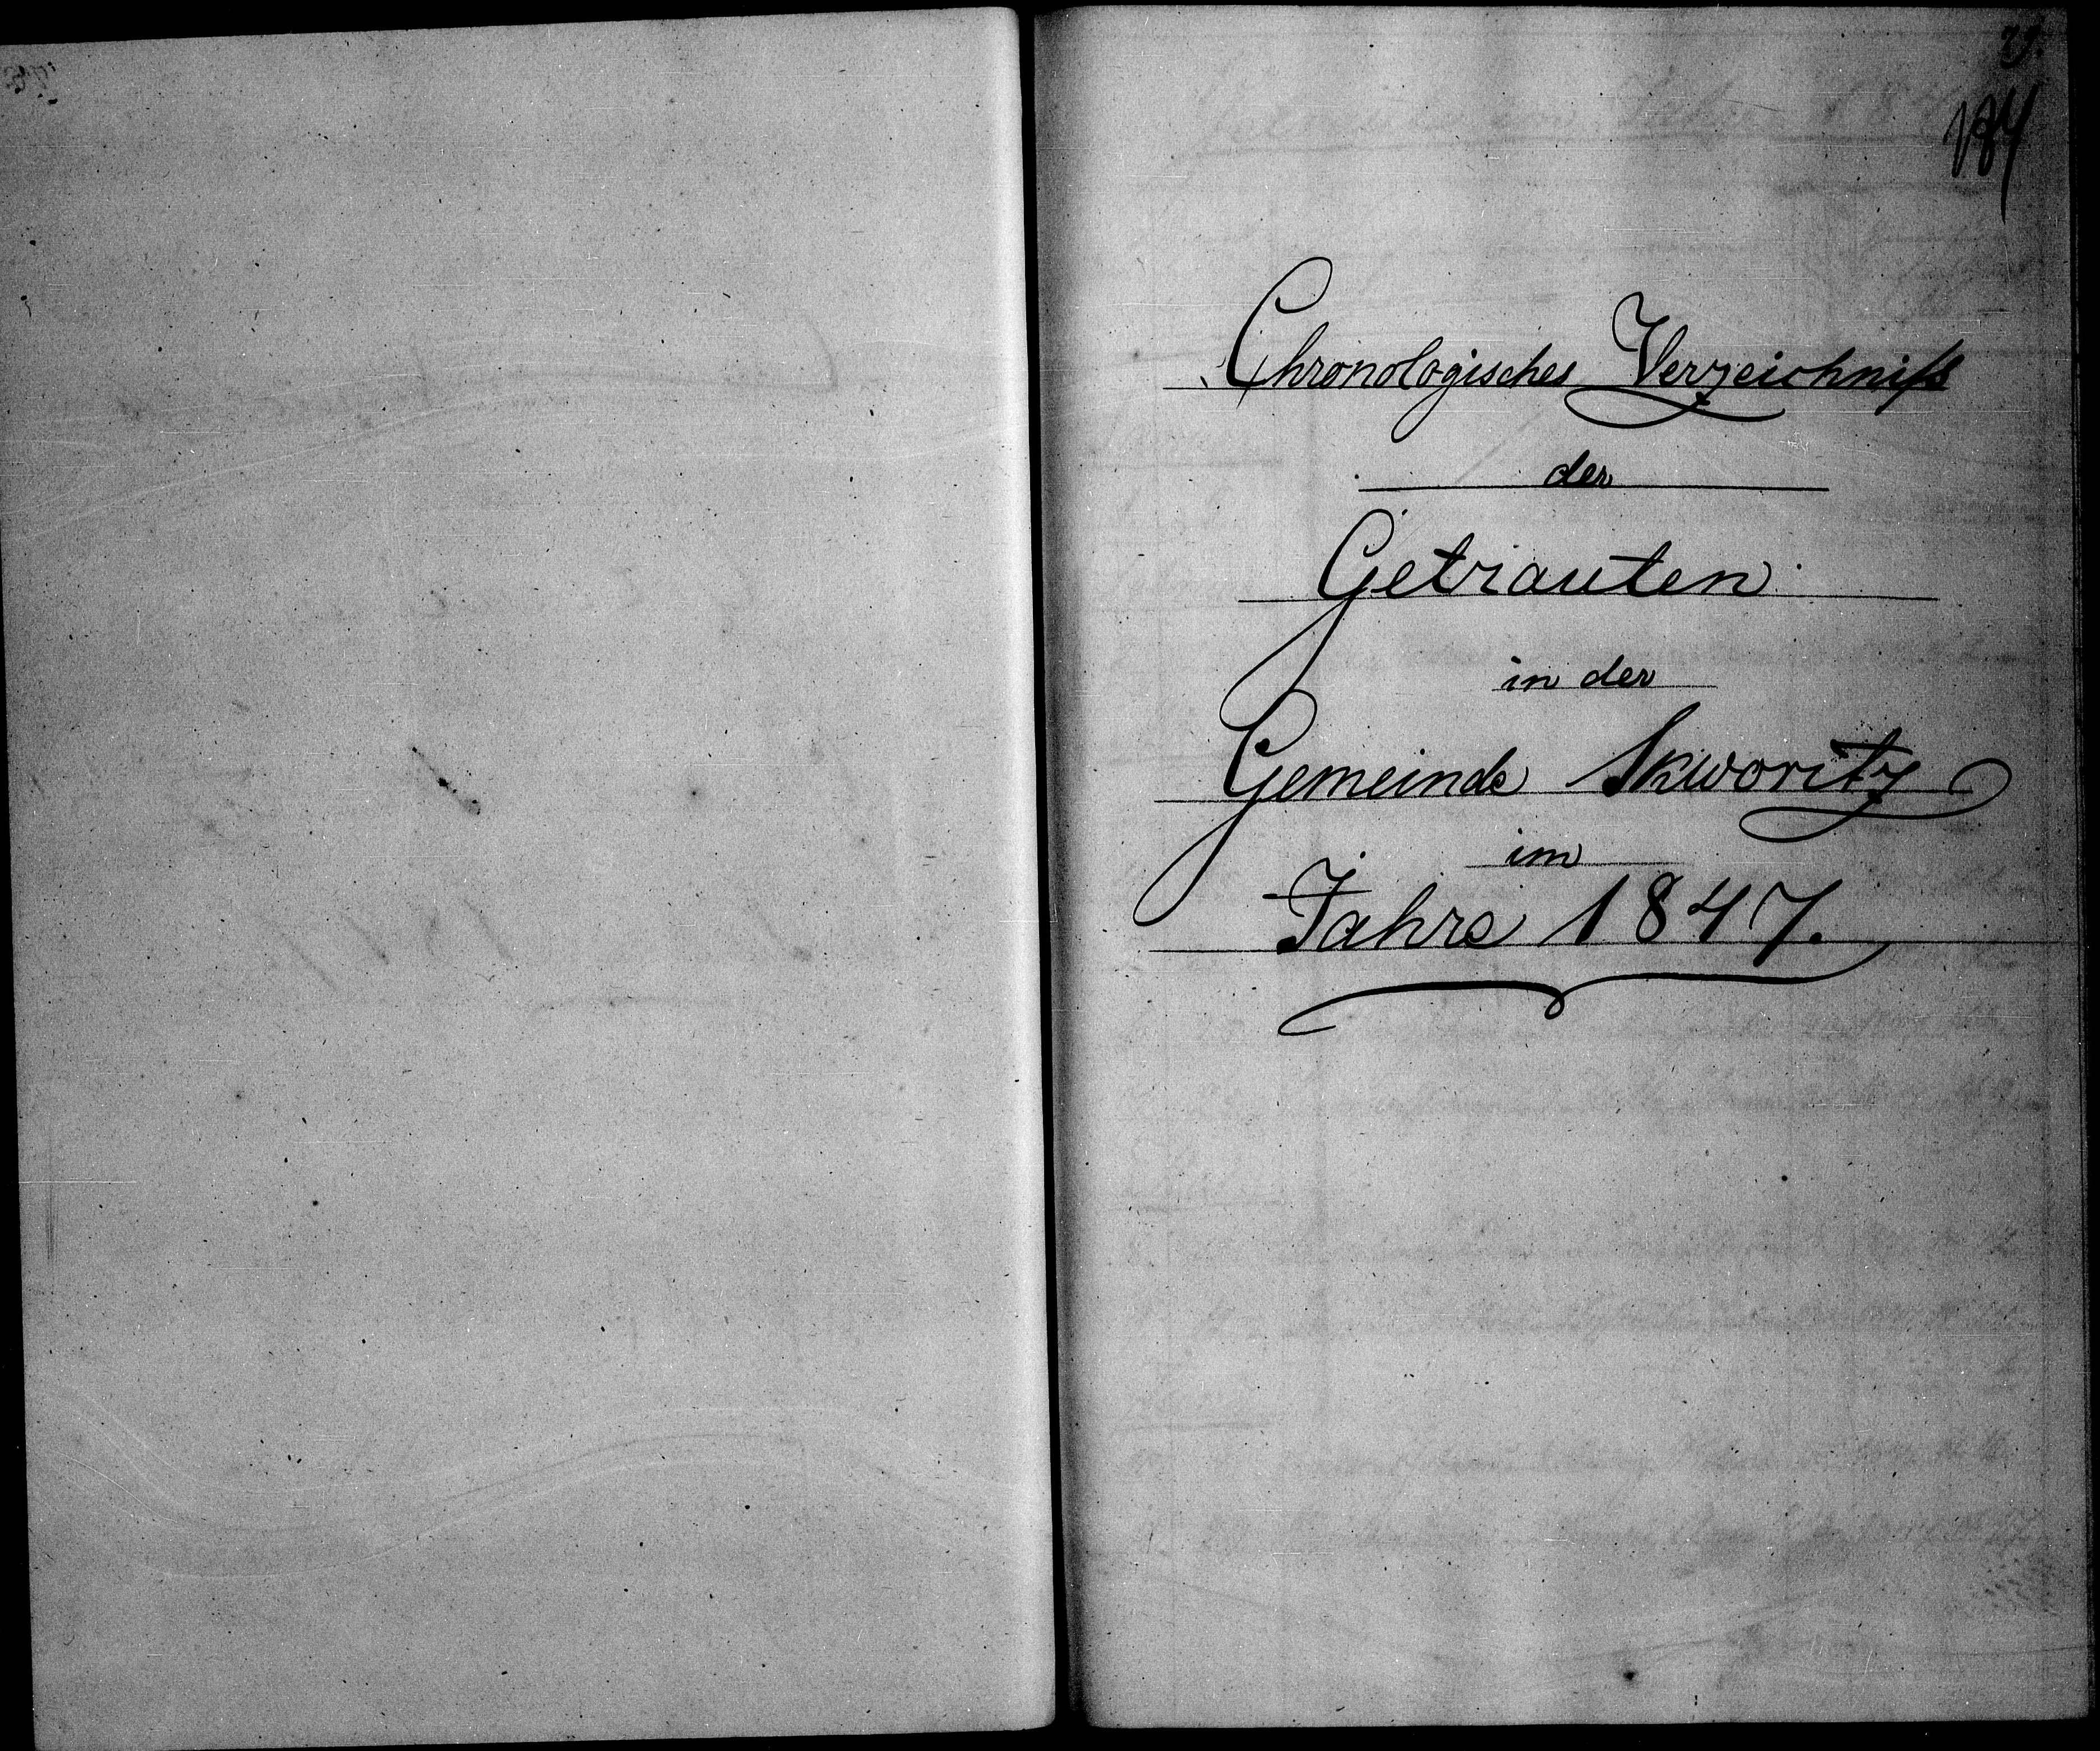 184
Chronologisches Verzeichniſs
der
Getrauten
in der
Gemeinde Skworitz
im
Jahre 1847.